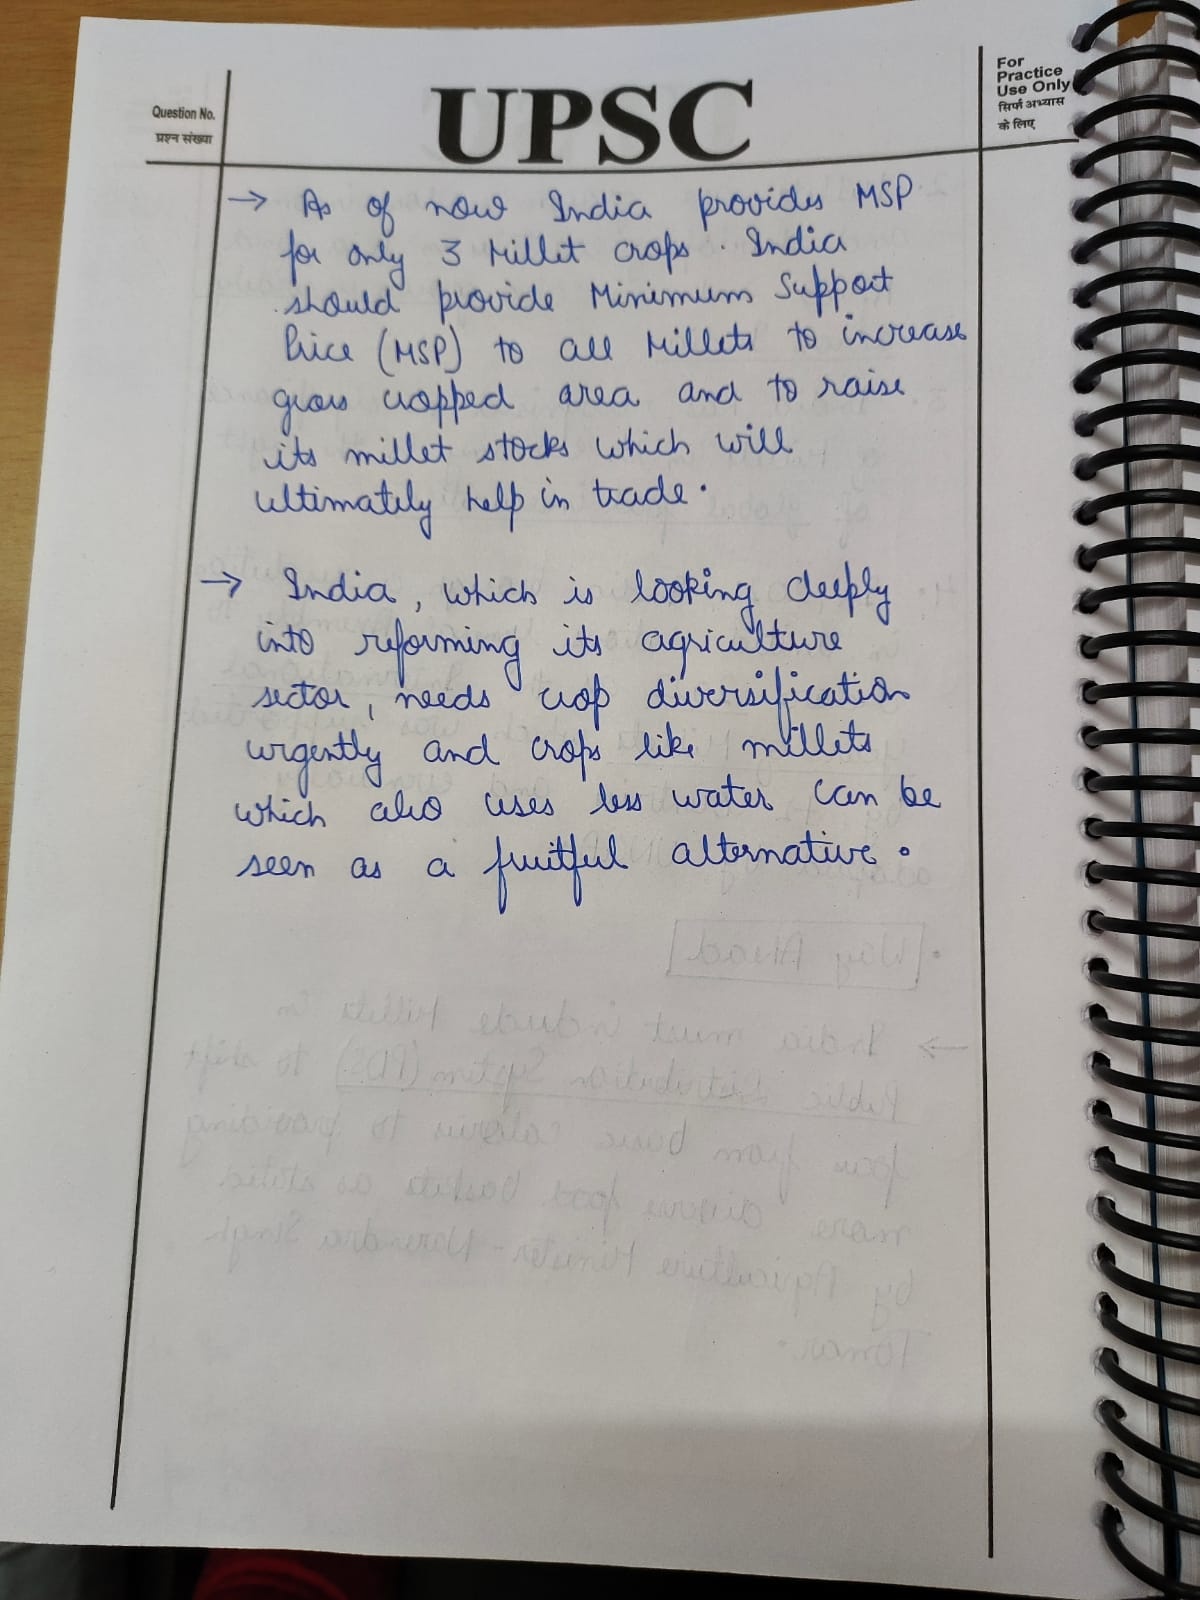 Question No.
प्रश्न संख्या
UPSC
For
Practice
Use Only
सिर्फ अभ्यास
के लिए
→ As of now India provides MSP
for only 3 Millet crops. India
should provide Minimum Support
Price (MSP) to all Millets to increase
gross cropped area and to raise
its millet stocks which will
ultimately help in trade.
→ India, which is looking deeply
into reforming its agriculture
sector, needs crop diversification
urgently and crops like millets
which also uses less water can be
seen as a fruitful alternative.